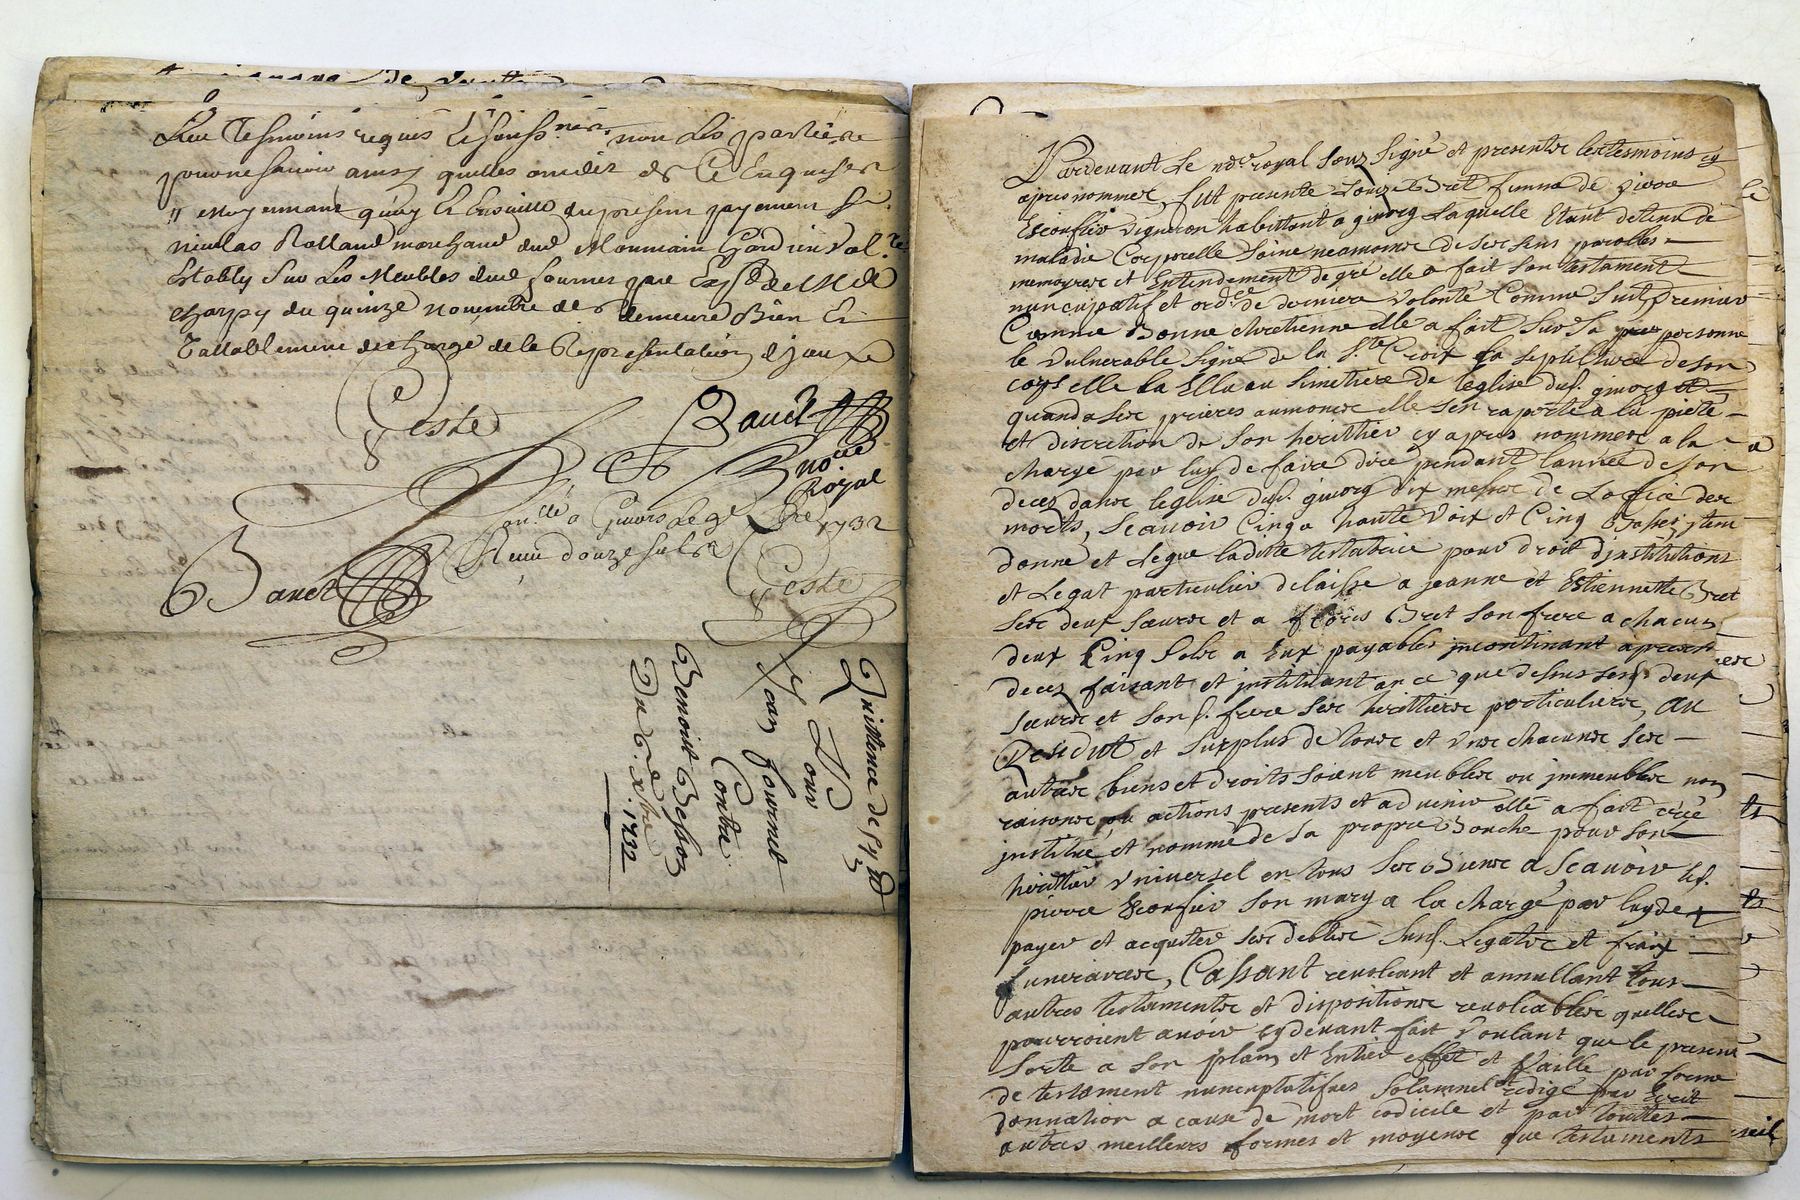 tesmoins requis non les parties
pour ne scavoir ainsy quelles ont dit de ce Enquises
moyennant quoy du present payement Sr.
nicolas Rolland marchand dud Mournain
Estably sur les Meubles dud fournet par
du quinze novembre demeure Bien Et
Vallablement dechargé de la Representation diceux
Ceste
Bauet
no.re
Royal
a Givors le 9e Xbre 1732
Receu douze sols
Bauet
Ceste
Quittance de
Pour
Jean fournet
Contre
Benoist Besson
Du 6e xbre 1732
Pardevant le no.re royal souz signé et presents les tesmoins cy
apres nommez, fut presente Louize Bret femme de pierre
Escoffier vigneron habittant a givorg laquelle Etant detenu de
maladie Corporelle saine neamoins de ses sens parolles
memoyres et Entendement de gré elle a fait son testament
nuncupatif et ord.ce de derniere volonté Comme suit, Premier
Comme Bonne chretienne elle a fait sur sa personne
le vulnerable signe de la S.te Croix la sepulture de son
corps elle la Ellu au simetiere de leglise dud. givorg et
quand a ses prieres aumones elle sen raporte a la pieté
et discretion de son herittier cy apres nommée a la
charge par luy de faire dire pendant lannée de son
decez dans leglise dud. givorg dix messes de Loffice des
morts, Scavoir Cinq a haute voix et Cinq Basses, jtem
donne et Legue laditte testatrice pour droit djnstitutions
et Legat particulier delaisse a jeanne et Estiennette Bret
ses deux sœurs et a floris Bret son frere a chacun
deux Cinq sols a Eux payables jncontinant apres
decez faisant et jnstituant en ce que dessus sesd. deux
sœurs et sond. frere ses herittiers particuliers, Au
Residut et surplus de tous et uns chacuns ses
autres biens et droits soient meubles ou jmmeubles noms
raisons, ou actions presents et advenir elle a fait créé
jnstitué et nommé de sa propre Bouche pour son
herittier vniversel en tous ses Biens a Scavoir led.
pierre Escoffier son mary a la charge par luy de
payer et acquiter ses debtes susd. Legats et fraix
funeraires, Cassant revoccant et annullant tous
autres testaments et dispositions revocables quelles
pourroient avoir cydevant fait voulant que le present
sorte a son plain et Entier effet et vaille par forme
de testament nuncupatif solamnel redigé par Ecrit
donnation a cause de mort codicile et par touttes
autres meilleurs formes et moyens que testaments